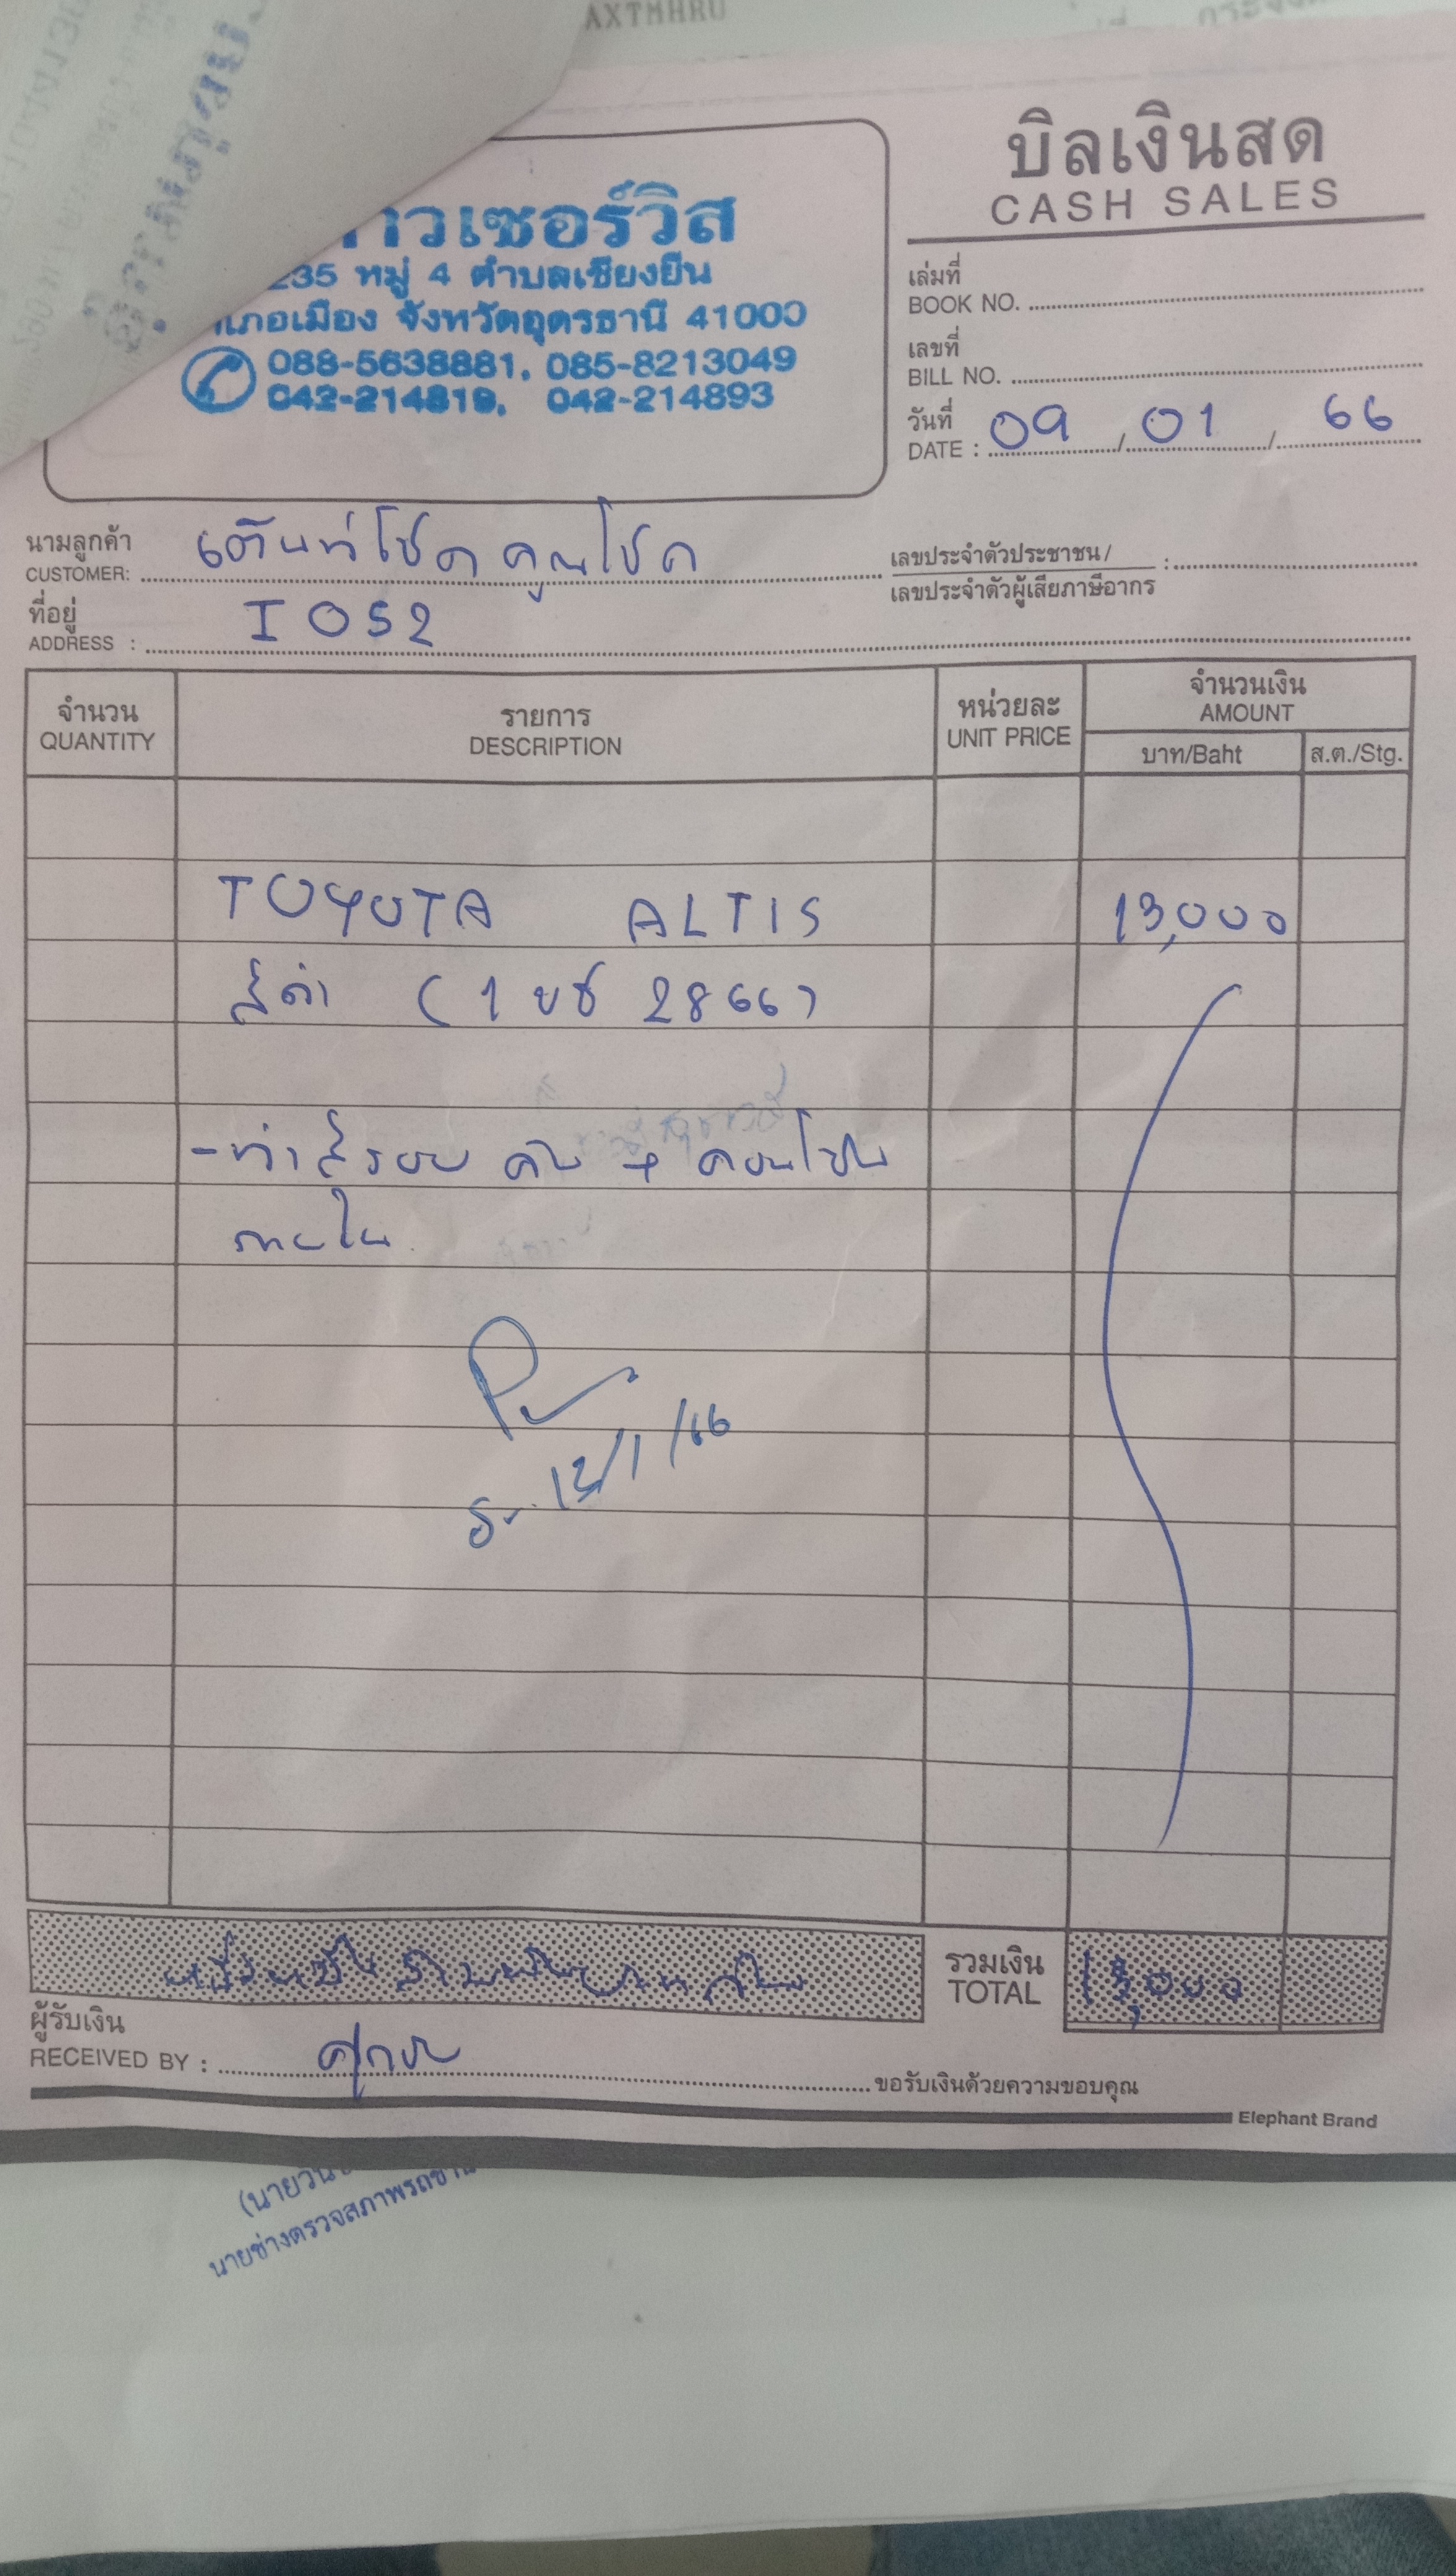 AXTMHRU
บิลเงินสด
CASH SALES
าวเซอร์วิส
235 หมู่ 4 ตำบลเชียงยืน
เภอเมือง จังหวัดอุดรธานี 41000
088-5638881, 085-8213049
042-214819, 042-214893
เล่มที่
BOOK NO.
เลขที่
BILL NO.
วันที่
DATE : 09 / 01 / 66
นามลูกค้า
CUSTOMER: เต็นท์โชคคูณโชค
เลขประจำตัวประชาชน/ :
เลขประจำตัวผู้เสียภาษีอากร
ที่อยู่
ADDRESS : I052
จำนวน
QUANTITY
รายการ
DESCRIPTION
หน่วยละ
UNIT PRICE
จำนวนเงิน
AMOUNT
บาท/Baht
ส.ต./Stg.
TOYOTA ALTIS 13,000
สีดำ (1 ขช 2866)
-ทำสีรอบคัน + คอนโซน
ภายใน
12/1/66
หนึ่งหมื่นสามพันบาทถ้วน
รวมเงิน
TOTAL
13,000
ผู้รับเงิน
RECEIVED BY :
ขอรับเงินด้วยความขอบคุณ
Elephant Brand
(นายวัน
นายช่างตรวจสภาพรถ